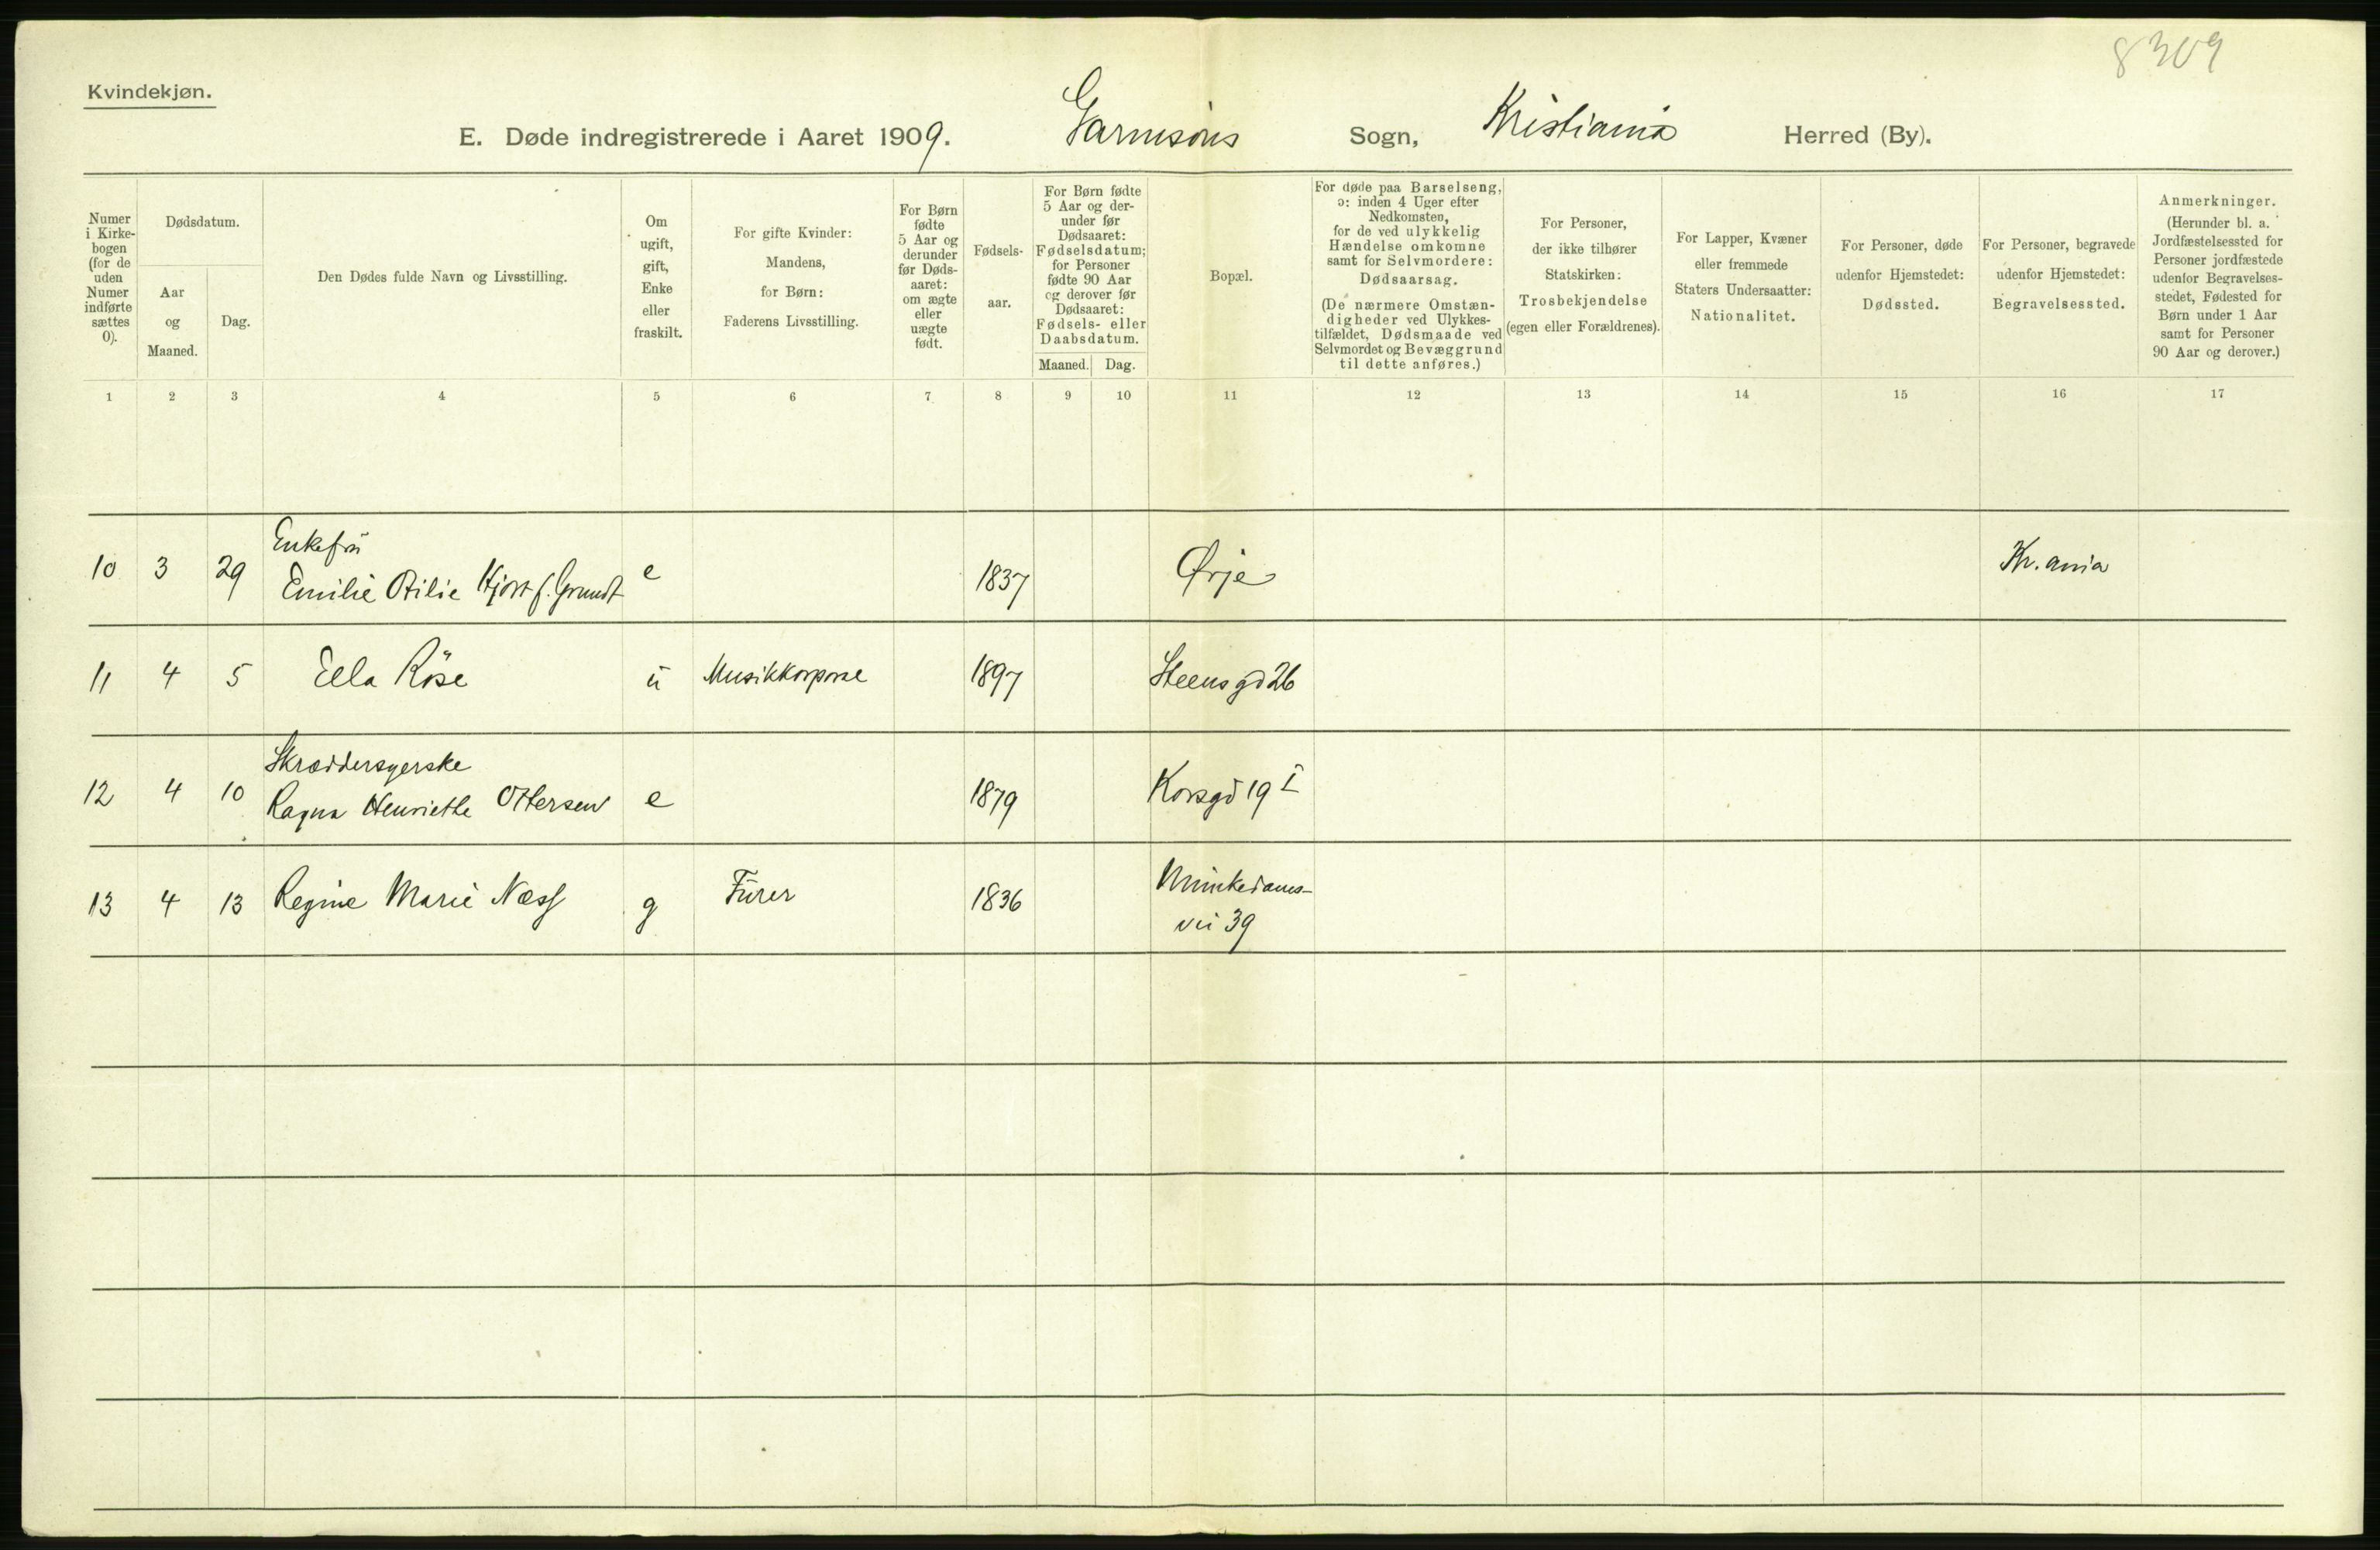 8309
Kvindekjøn.
E. Døde indregistrerede i Aaret 1909. Garnisons Sogn, Kristiania Herred (By).
Numer
i Kirke-
bogen
(for de
uden
Numer
indførte
sættes
0).
Dødsdatum.
Aar
og
Maaned.
Dag.
Den Dødes fulde Navn og Livsstilling.
Om
ugift,
gift,
Enke
eller
fraskilt.
For gifte Kvinder:
Mandens,
for Børn:
Faderens Livsstilling.
For Børn
fødte
5 Aar og
derunder
før Døds-
aaret:
om ægte
eller
uægte
født.
Fødsels-
aar.
For Børn fødte
5 Aar og der-
under før
Dødsaaret:
Fødselsdatum;
for Personer
fødte 90 Aar
og derover før
Dødsaaret:
Fødsels- eller
Daabsdatum.
Maaned. Dag.
Bopæl.
For døde paa Barselseng,
ɔ: inden 4 Uger efter
Nedkomsten,
for de ved ulykkelig
Hændelse omkomne
samt for Selvmordere:
Dødsaarsag.
(De nærmere Omstæn-
digheder ved Ulykkes-
tilfældet, Dødsmaade ved
Selvmordet og Bevæggrund
til dette anføres.)
For Personer,
der ikke tilhører
Statskirken:
Trosbekjendelse
(egen eller Forældrenes).
For Lapper, Kvæner
eller fremmede
Staters Undersaatter:
Nationalitet.
For Personer, døde
udenfor Hjemstedet:
Dødssted.
For Personer, begravede
udenfor Hjemstedet:
Begravelsessted.
Anmerkninger.
(Herunder bl. a.
Jordfæstelsessted for
Personer jordfæstede
udenfor Begravelses-
stedet, Fødested for
Børn under 1 Aar
samt for Personer
90 Aar og derover.)
1 2 3 4 5 6 7 8 9 10 11 12 13 14 15 16 17
Enkefru
10 3 29 Emilie Otilie Hjort f. Grundt e 1837 Ørje Kr.ania
11 4 5 Ella Röse u Musikkorporal 1897 Steensgd 26
Skræddersyerske
12 4 10 Ragna Henriette Ottersen e 1879 Korsgd 19 I
13 4 13 Regine Marie Næss g Furer 1836 Munkedams-
vei 39